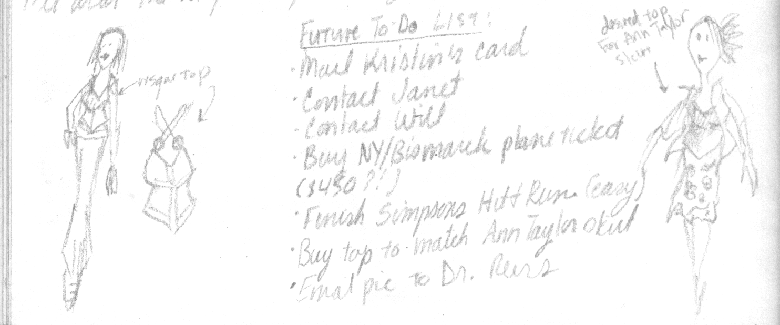 Future To Do List:
· Mail Kristin's card
· Contact Janet
· Contact Will
· Buy NY/Bismarck plane ticket
($450??)
· Finish Simpsons Hit & Run (easy)
· Buy top to match Ann Taylor skirt
· Email pic to Dr.
top
desired top
for Ann Taylor
skirt